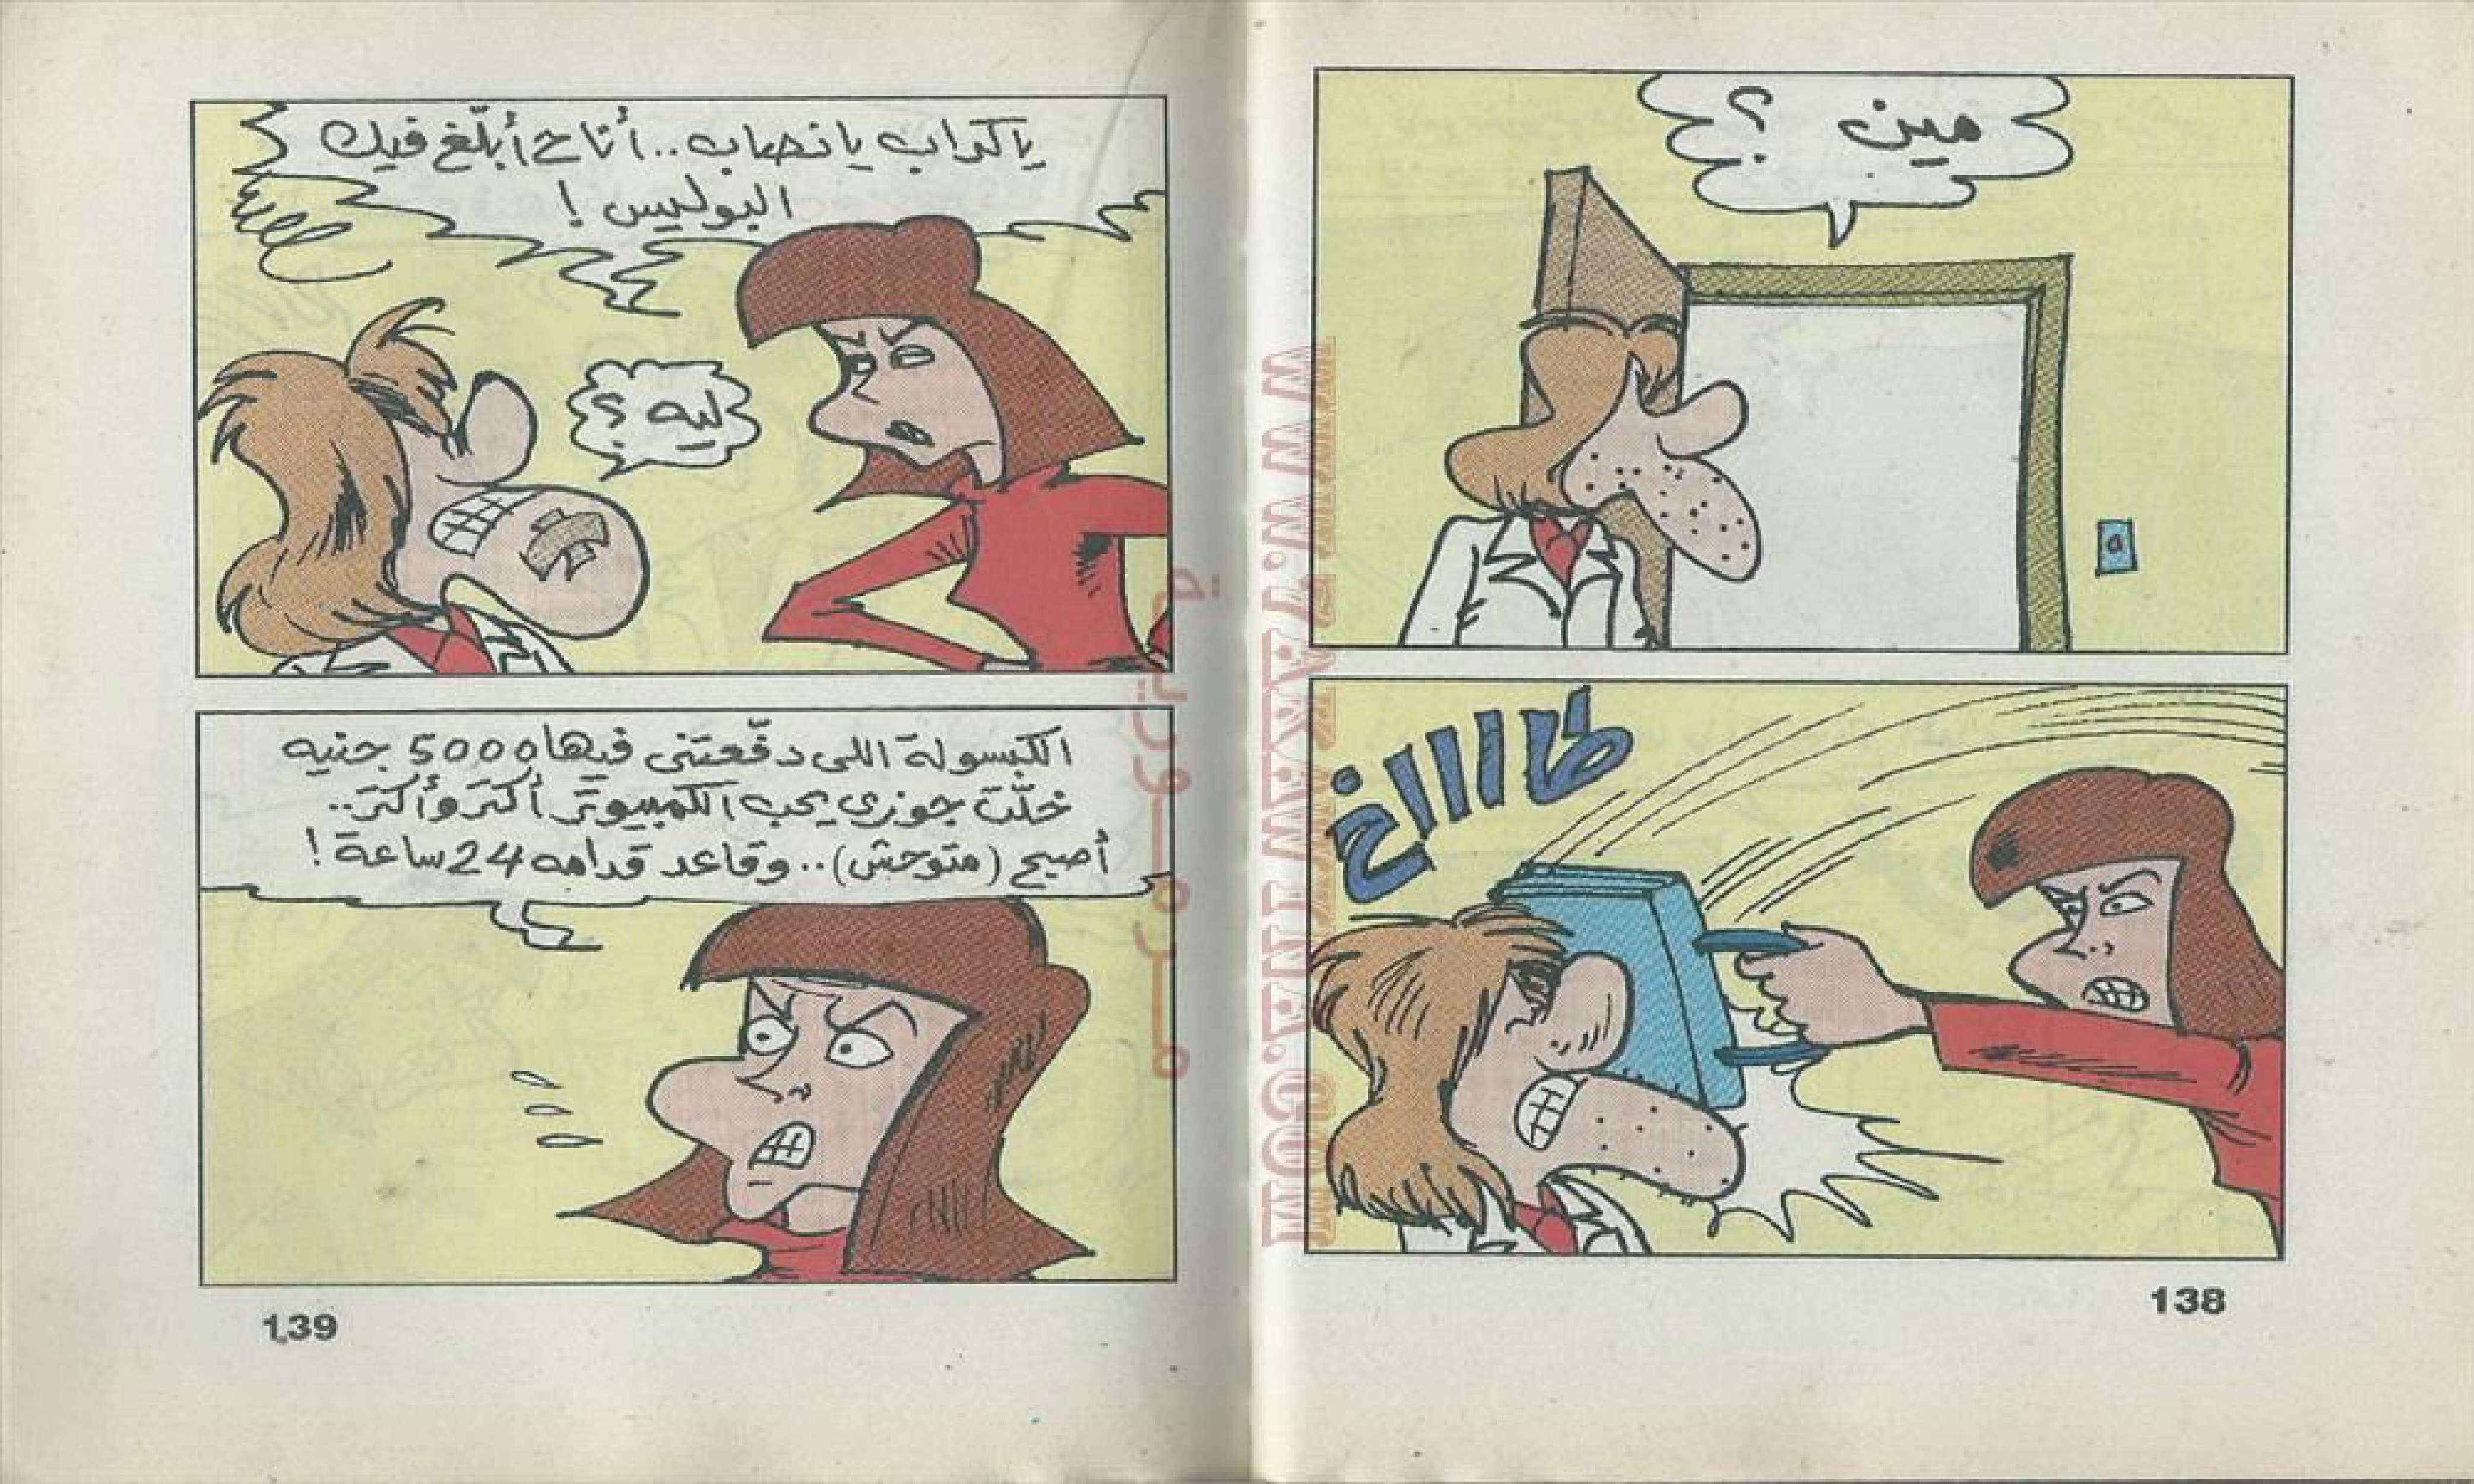 مين ؟
طاااخ
138
يا كداب يا نصاب.. أنا ح أبلّغ فيك
البوليس !
ليه ؟
الكبسولة اللى دفّعتنى فيها 5000 جنيه
خلّت جوزى يحب الكمبيوتر أكتر وأكتر..
أصبح (متوحش).. وقاعد قدامه 24 ساعة !
139